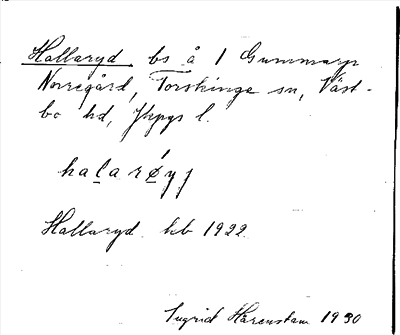 Hallaryd bs å 1 Gummarp
Norregård, Torskinge sn, Väst-
bo hd, Jkpgs l.
halarǿyj
Hallaryd hb 1922.
Ingrid Härenstam 1930